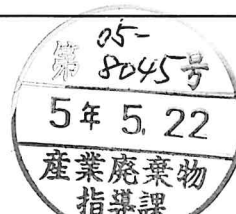 第 05-8045 号
5年 5.22
産業廃棄物
指導課